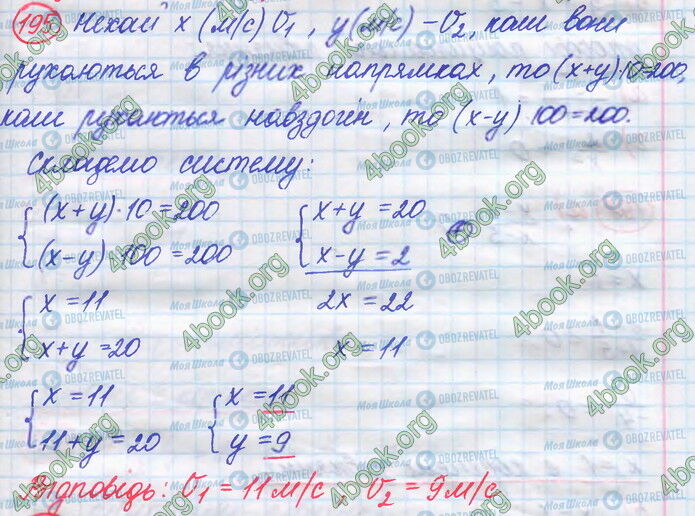 195 Нехай x (м/с) υ₁, y (м/с) – υ₂, коли вони
рухаються в різних напрямках, то (x+y)·10=200,
коли рухаються навздогін, то (x-y)·100=200.
Складемо систему:
{(x+y)·10=200 {x+y=20
{(x-y)·100=200 {x-y=2
{x=11 2x=22
{x+y=20 x=11
{x=11 {x=11
{11+y=20 {y=9
Відповідь: υ₁=11м/с, υ₂=9м/с
4book.org
Моя Школа
OBOZREVATEL